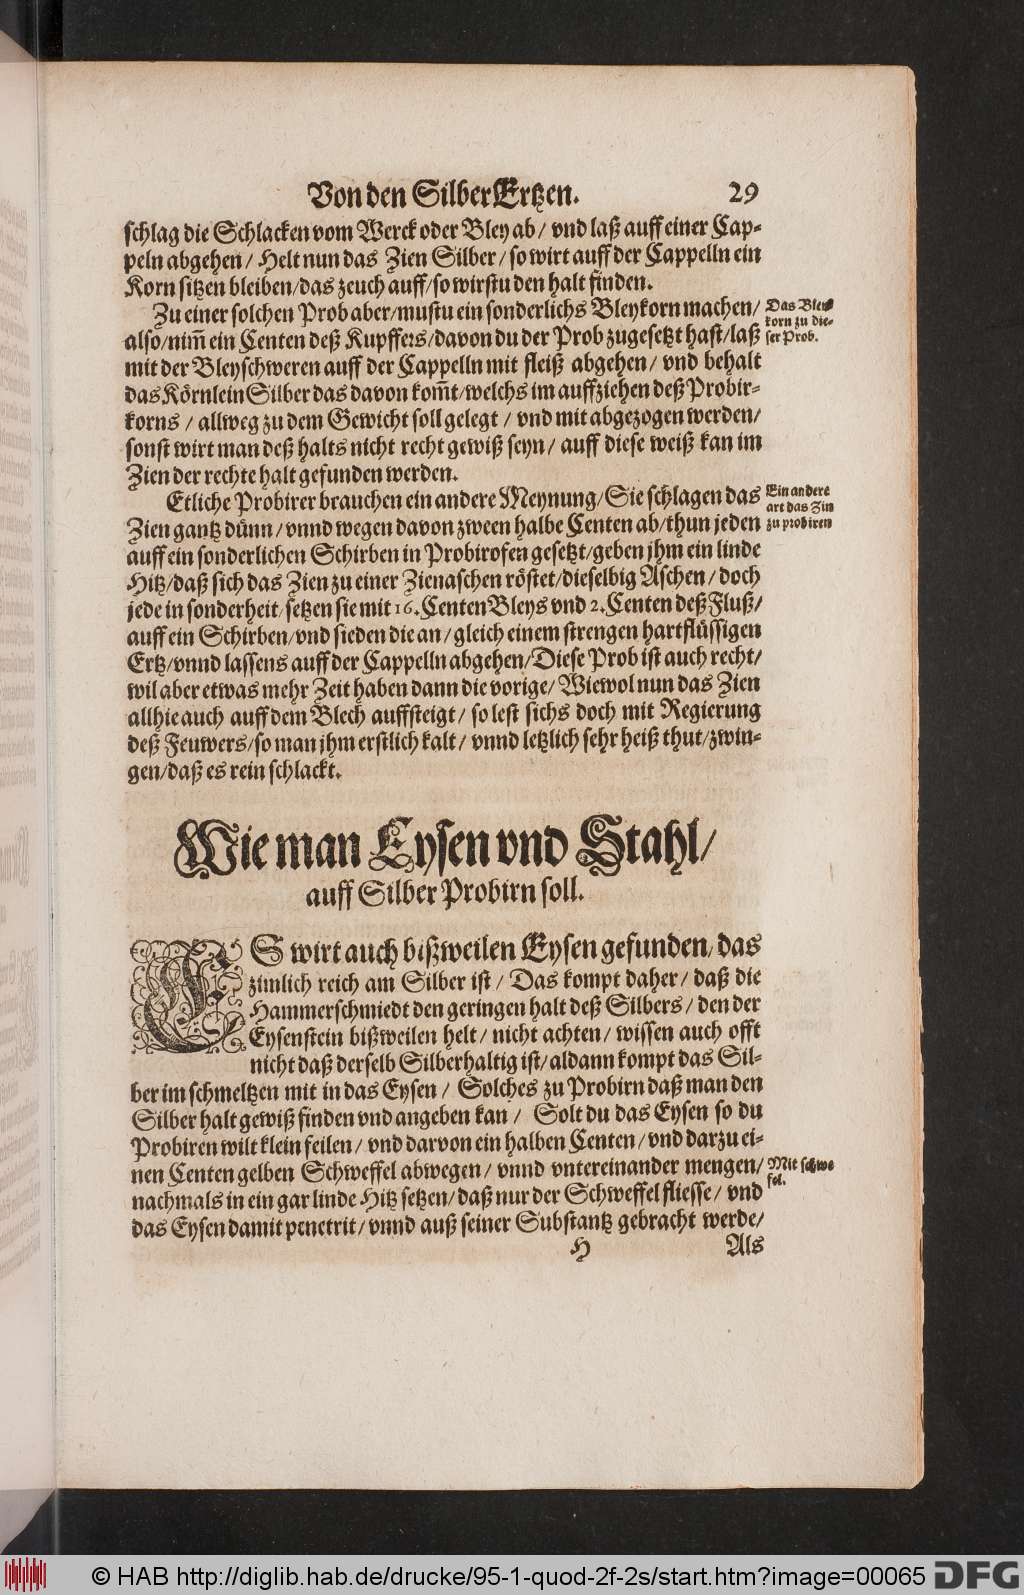 Von den Silber Ertzen. 29
schlag die Schlacken vom Werck oder Bley ab / vnd laß auff einer Cap-
peln abgehen / Helt nun das Zien Silber / so wirt auff der Cappelln ein
Korn sitzen bleiben / das zeuch auff / so wirstu den halt finden.
Zu einer solchen Prob aber / mustu ein sonderlichs Bleykorn machen /
also / nim̃ ein Centen deß Kupffers / davon du der Prob zugesetzt hast / laß
mit der Bleyschweren auff der Cappelln mit fleiß abgehen / vnd behalt
das Körnlein Silber das davon kom̃t / welchs im auffziehen deß Probir-
korns / allweg zu dem Gewicht soll gelegt / vnd mit abgezogen werden /
sonst wirt man deß halts nicht recht gewiß seyn / auff diese weiß kan im
Zien der rechte halt gefunden werden.
Das Bley-
korn zu die-
ser Prob.
Etliche Probirer brauchen ein andere Meynung / Sie schlagen das
Zien gantz dünn / vnnd wegen davon zween halbe Centen ab / thun jeden
auff ein sonderlichen Schirben in Probirofen gesetzt / geben jhm ein linde
Hitz / daß sich das Zien zu einer Zienaschen röstet / dieselbig Aschen / doch
jede in sonderheit / setzen sie mit 16. Centen Bleys vnd 2. Centen deß Fluß /
auff ein Schirben / vnd sieden die an / gleich einem strengen hartflüssigen
Ertz / vnnd lassens auff der Cappelln abgehen / Diese Prob ist auch recht /
wil aber etwas mehr Zeit haben dann die vorige / Wiewol nun das Zien
allhie auch auff dem Blech auffsteigt / so lest sichs doch mit Regierung
deß Feuwers / so man jhm erstlich kalt / vnnd letzlich sehr heiß thut / zwin-
gen / daß es rein schlackt.
Ein andere
art das Zin
zu probiren
Wie man Eysen vnd Stahl /
auff Silber Probirn soll.
ES wirt auch bißweilen Eysen gefunden / das
zimlich reich am Silber ist / Das kompt daher / daß die
Hammerschmiedt den geringen halt deß Silbers / den der
Eysenstein bißweilen helt / nicht achten / wissen auch offt
nicht daß derselb Silberhaltig ist / aldann kompt das Sil-
ber im schmeltzen mit in das Eysen / Solches zu Probirn daß man den
Silber halt gewiß finden vnd angeben kan / Solt du das Eysen so du
Probiren wilt klein feilen / vnd darvon ein halben Centen / vnd darzu ei-
nen Centen gelben Schweffel abwegen / vnnd vntereinander mengen /
nachmals in ein gar linde Hitz setzen / daß nur der Schweffel fliesse / vnd
das Eysen damit penetrit / vnnd auß seiner Substantz gebracht werde /
Mit schwe-
fel.
H Als
© HAB http://diglib.hab.de/drucke/95-1-quod-2f-2s/start.htm?image=00065 DFG